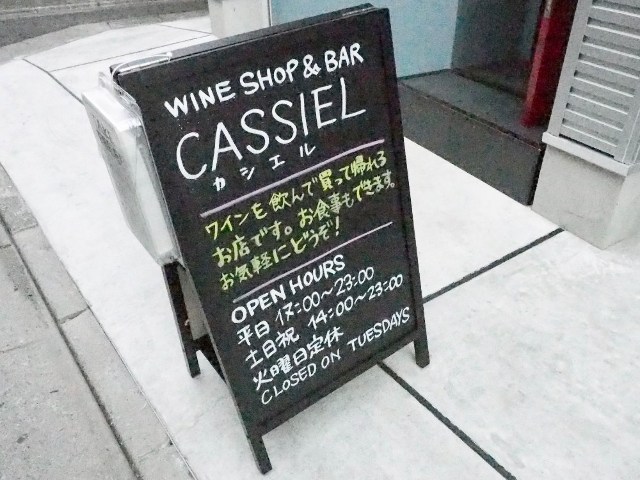 WINE SHOP & BAR
CASSIEL
カシエル
ワインを飲んで買って帰れる
お店です。お食事もできます。
お気軽にどうぞ!
OPEN HOURS
平日 17:00~23:00
土日祝 14:00~23:00
火曜日定休
CLOSED ON TUESDAYS